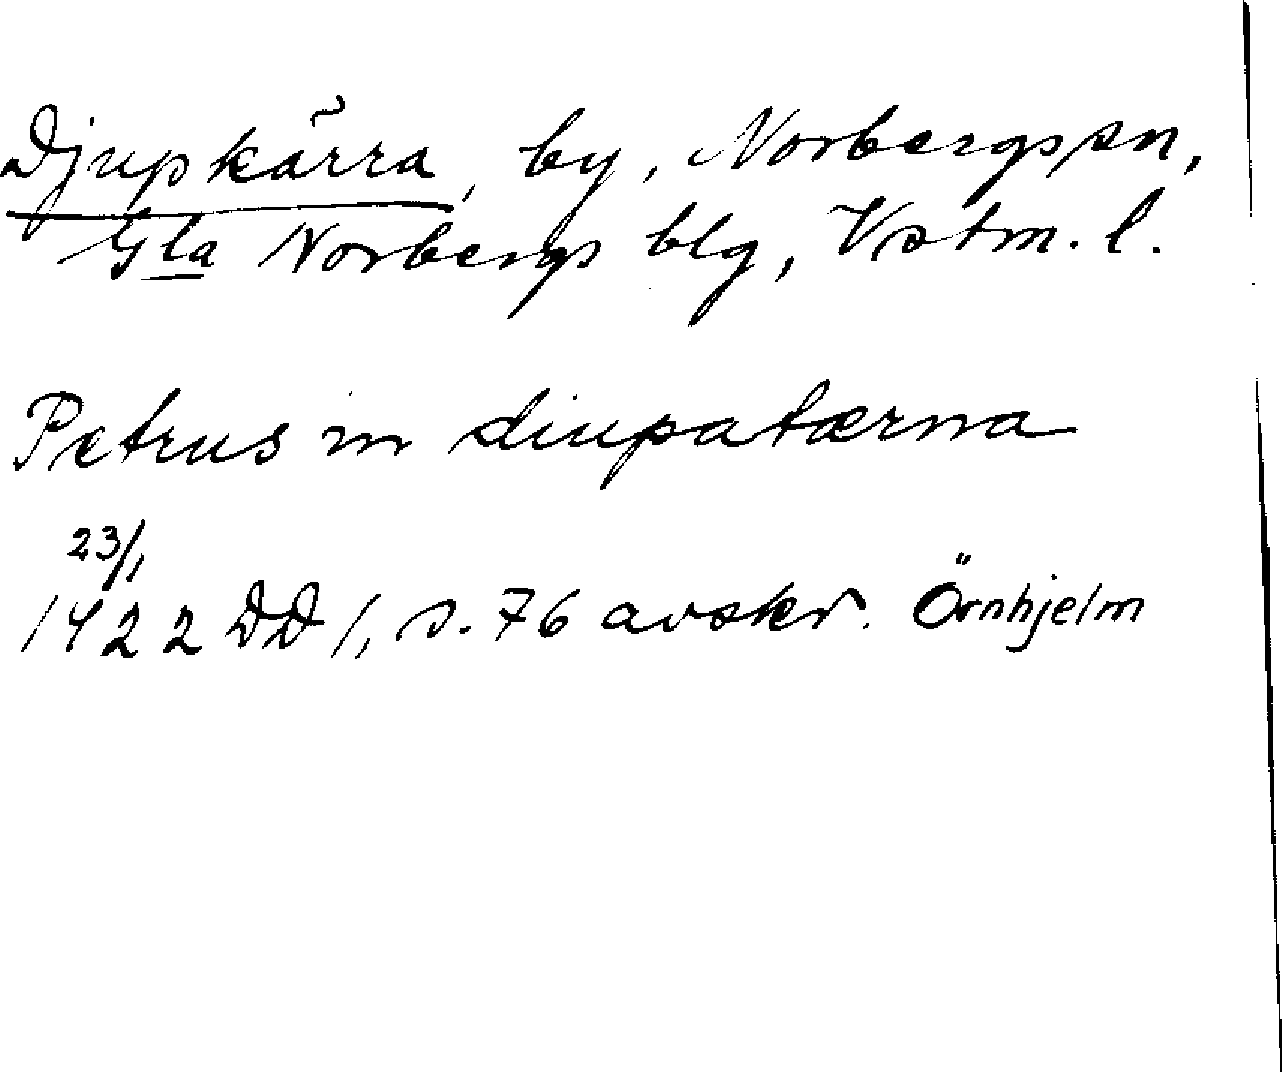 Djupkärra, by, Norbergs sn,
Gla Norbergs blg, Vstm. l.
Petrus in diupatærna
23/1
1422 DD 1, s. 76 avskr. Örnhjelm